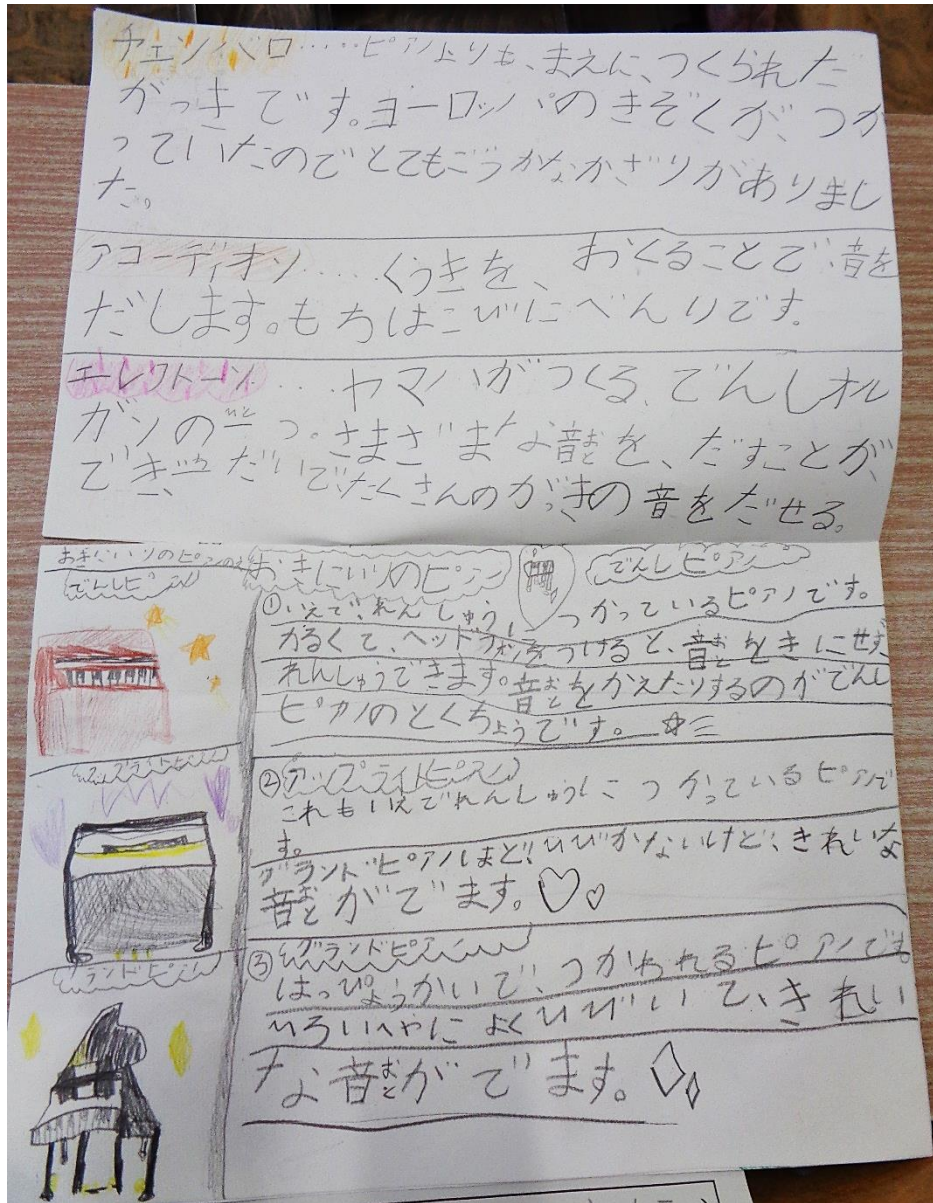 チェンバロ.....ピアノよりも、まえに、つくられた
がっきです。ヨーロッパのきぞくが、つか
っていたのでとてもごうかなかざりがありまし
た。
アコーディオン.....くうきを、おくることで音を
だします。もちはこびにべんりです。
エレクトーン....ヤマハがつくる、でんしオル
ガンの一つ。さまざまな音を、だすことが、
ひと
おと
でき、一だいでたくさんのがっきの音をだせる。
おきにいりのピアノ
でんしピアノ
おきにいりのピアノ
でんしピアノ
①いえで、れんしゅうしつかっているピアノです。
かるくて、ヘッドフォンをつけると、音をきにせず
おと
れんしゅうできます。音をかえたりするのがでんし
おと
ピアノのとくちょうです。
アップライトピアノ
②アップライトピアノ
これもいえでれんしゅうにつかっているピアノで
す。
グランドピアノほど、ひびかないけど、きれいな
音がでます。
おと
グランドピアノ
③グランドピアノ
はっぴょうかいで、つかわれるピアノです
ひろいへやによくひびいて、きれい
な音がでます。
おと